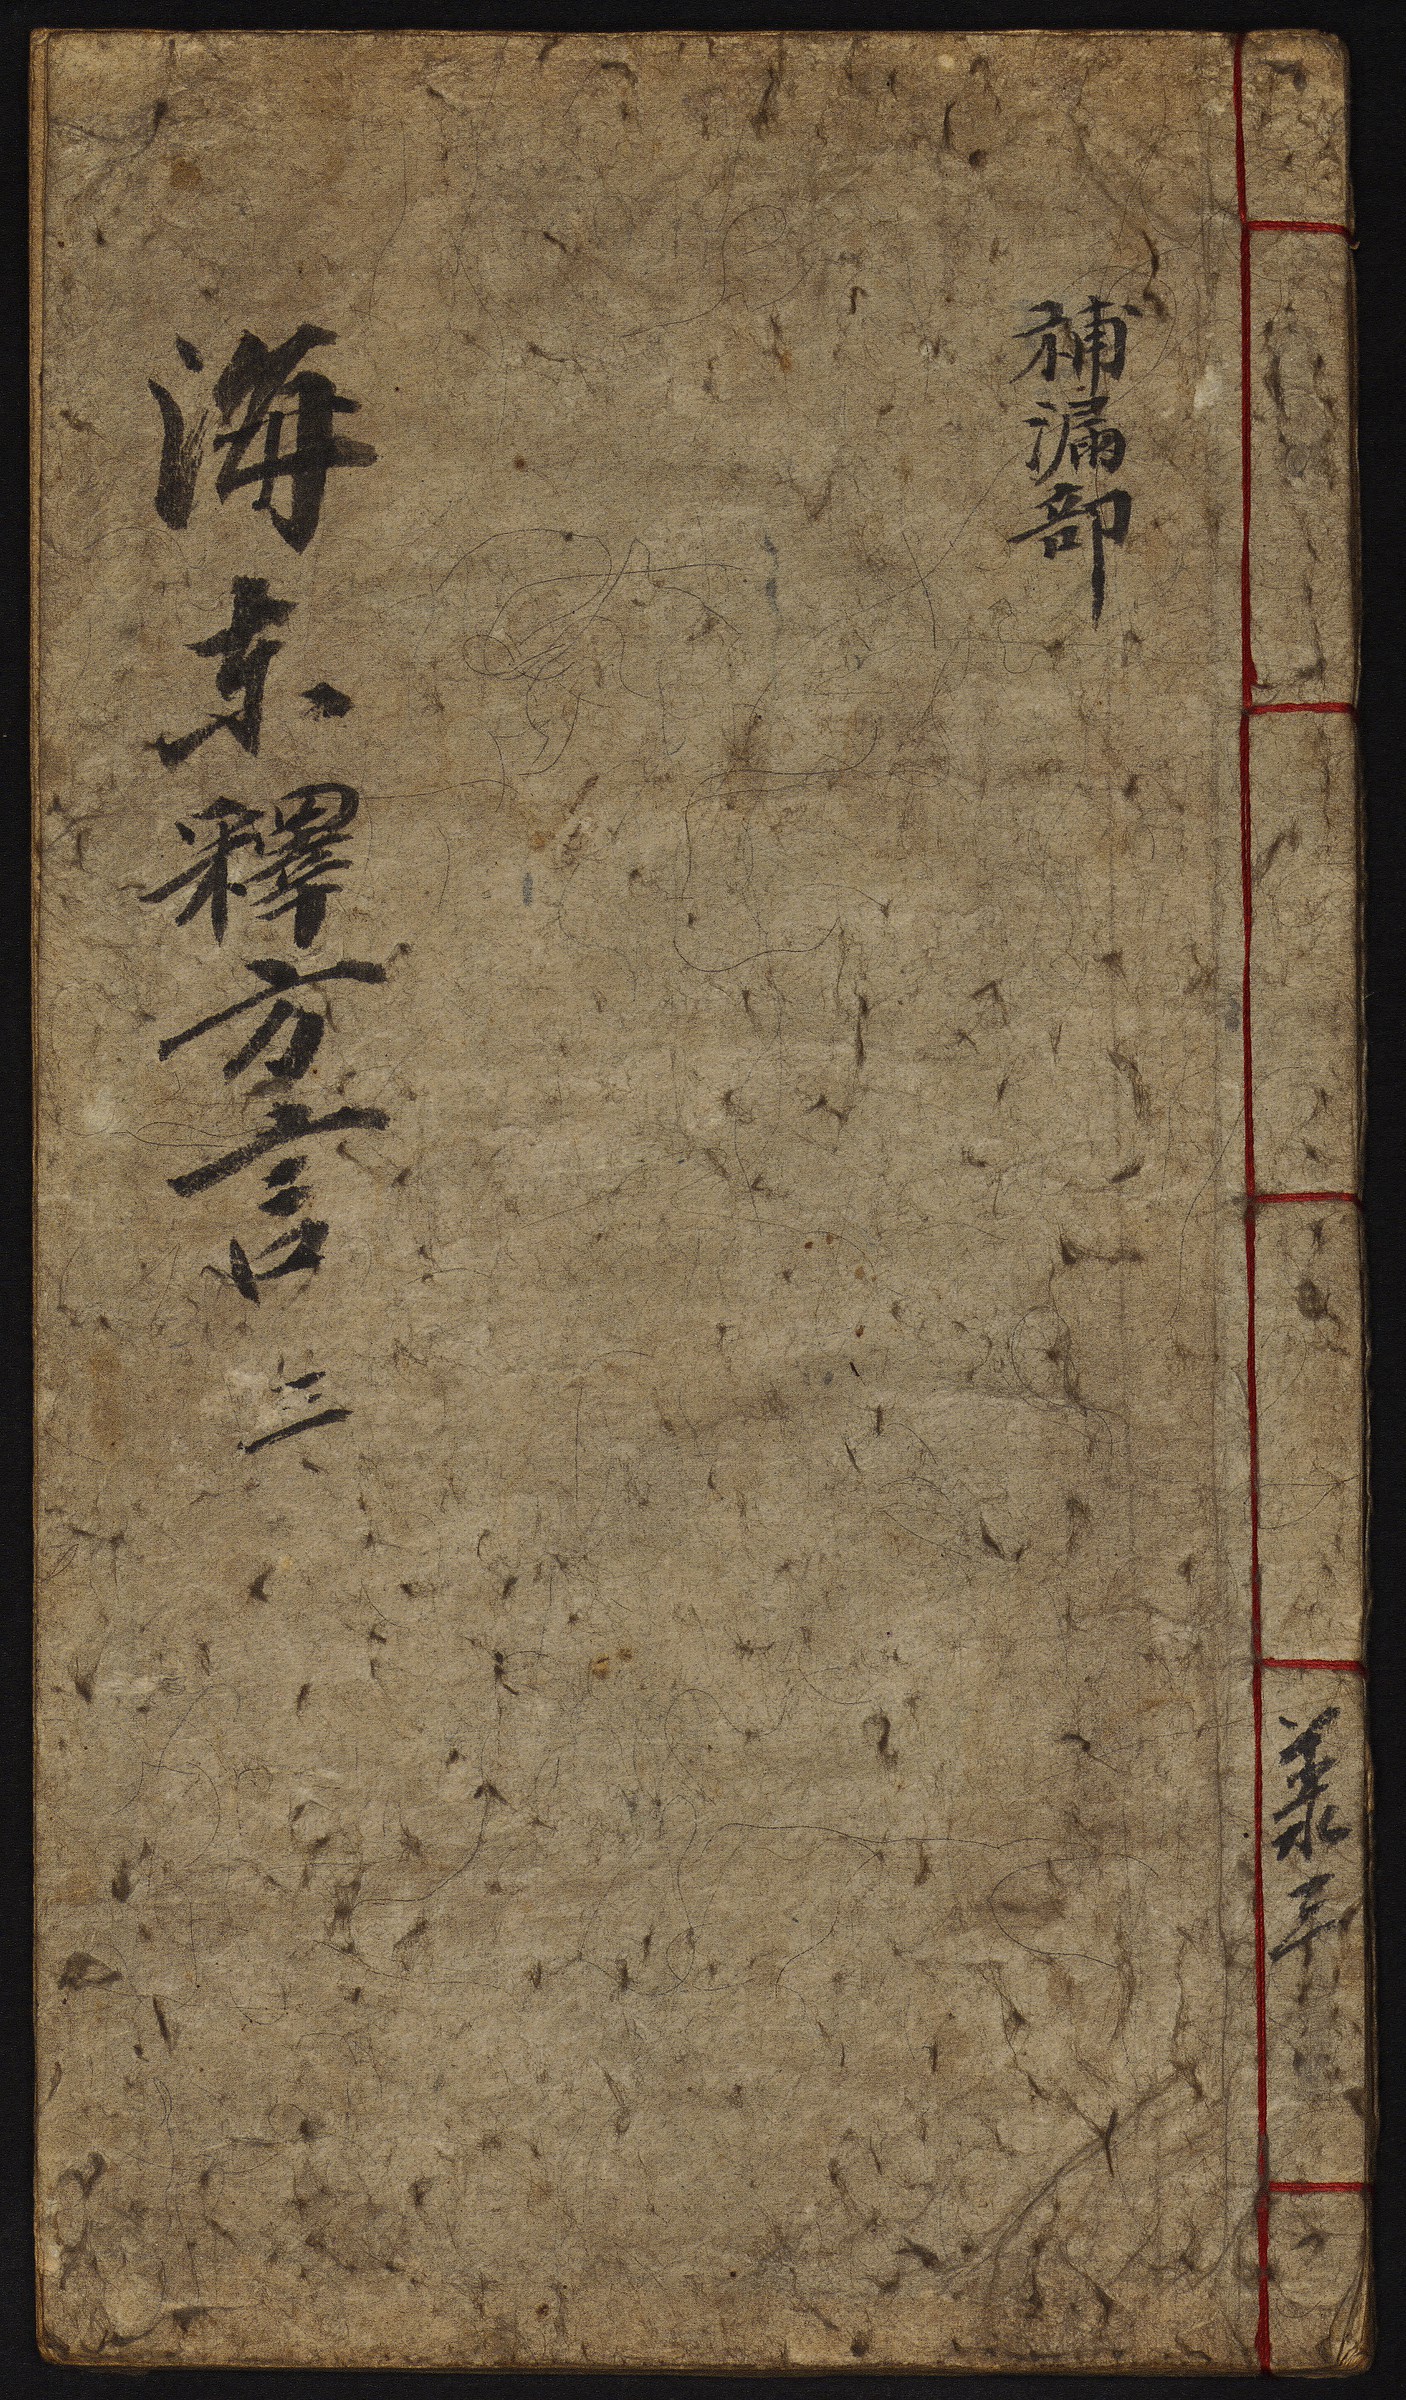 補漏部
海東釋方言 三